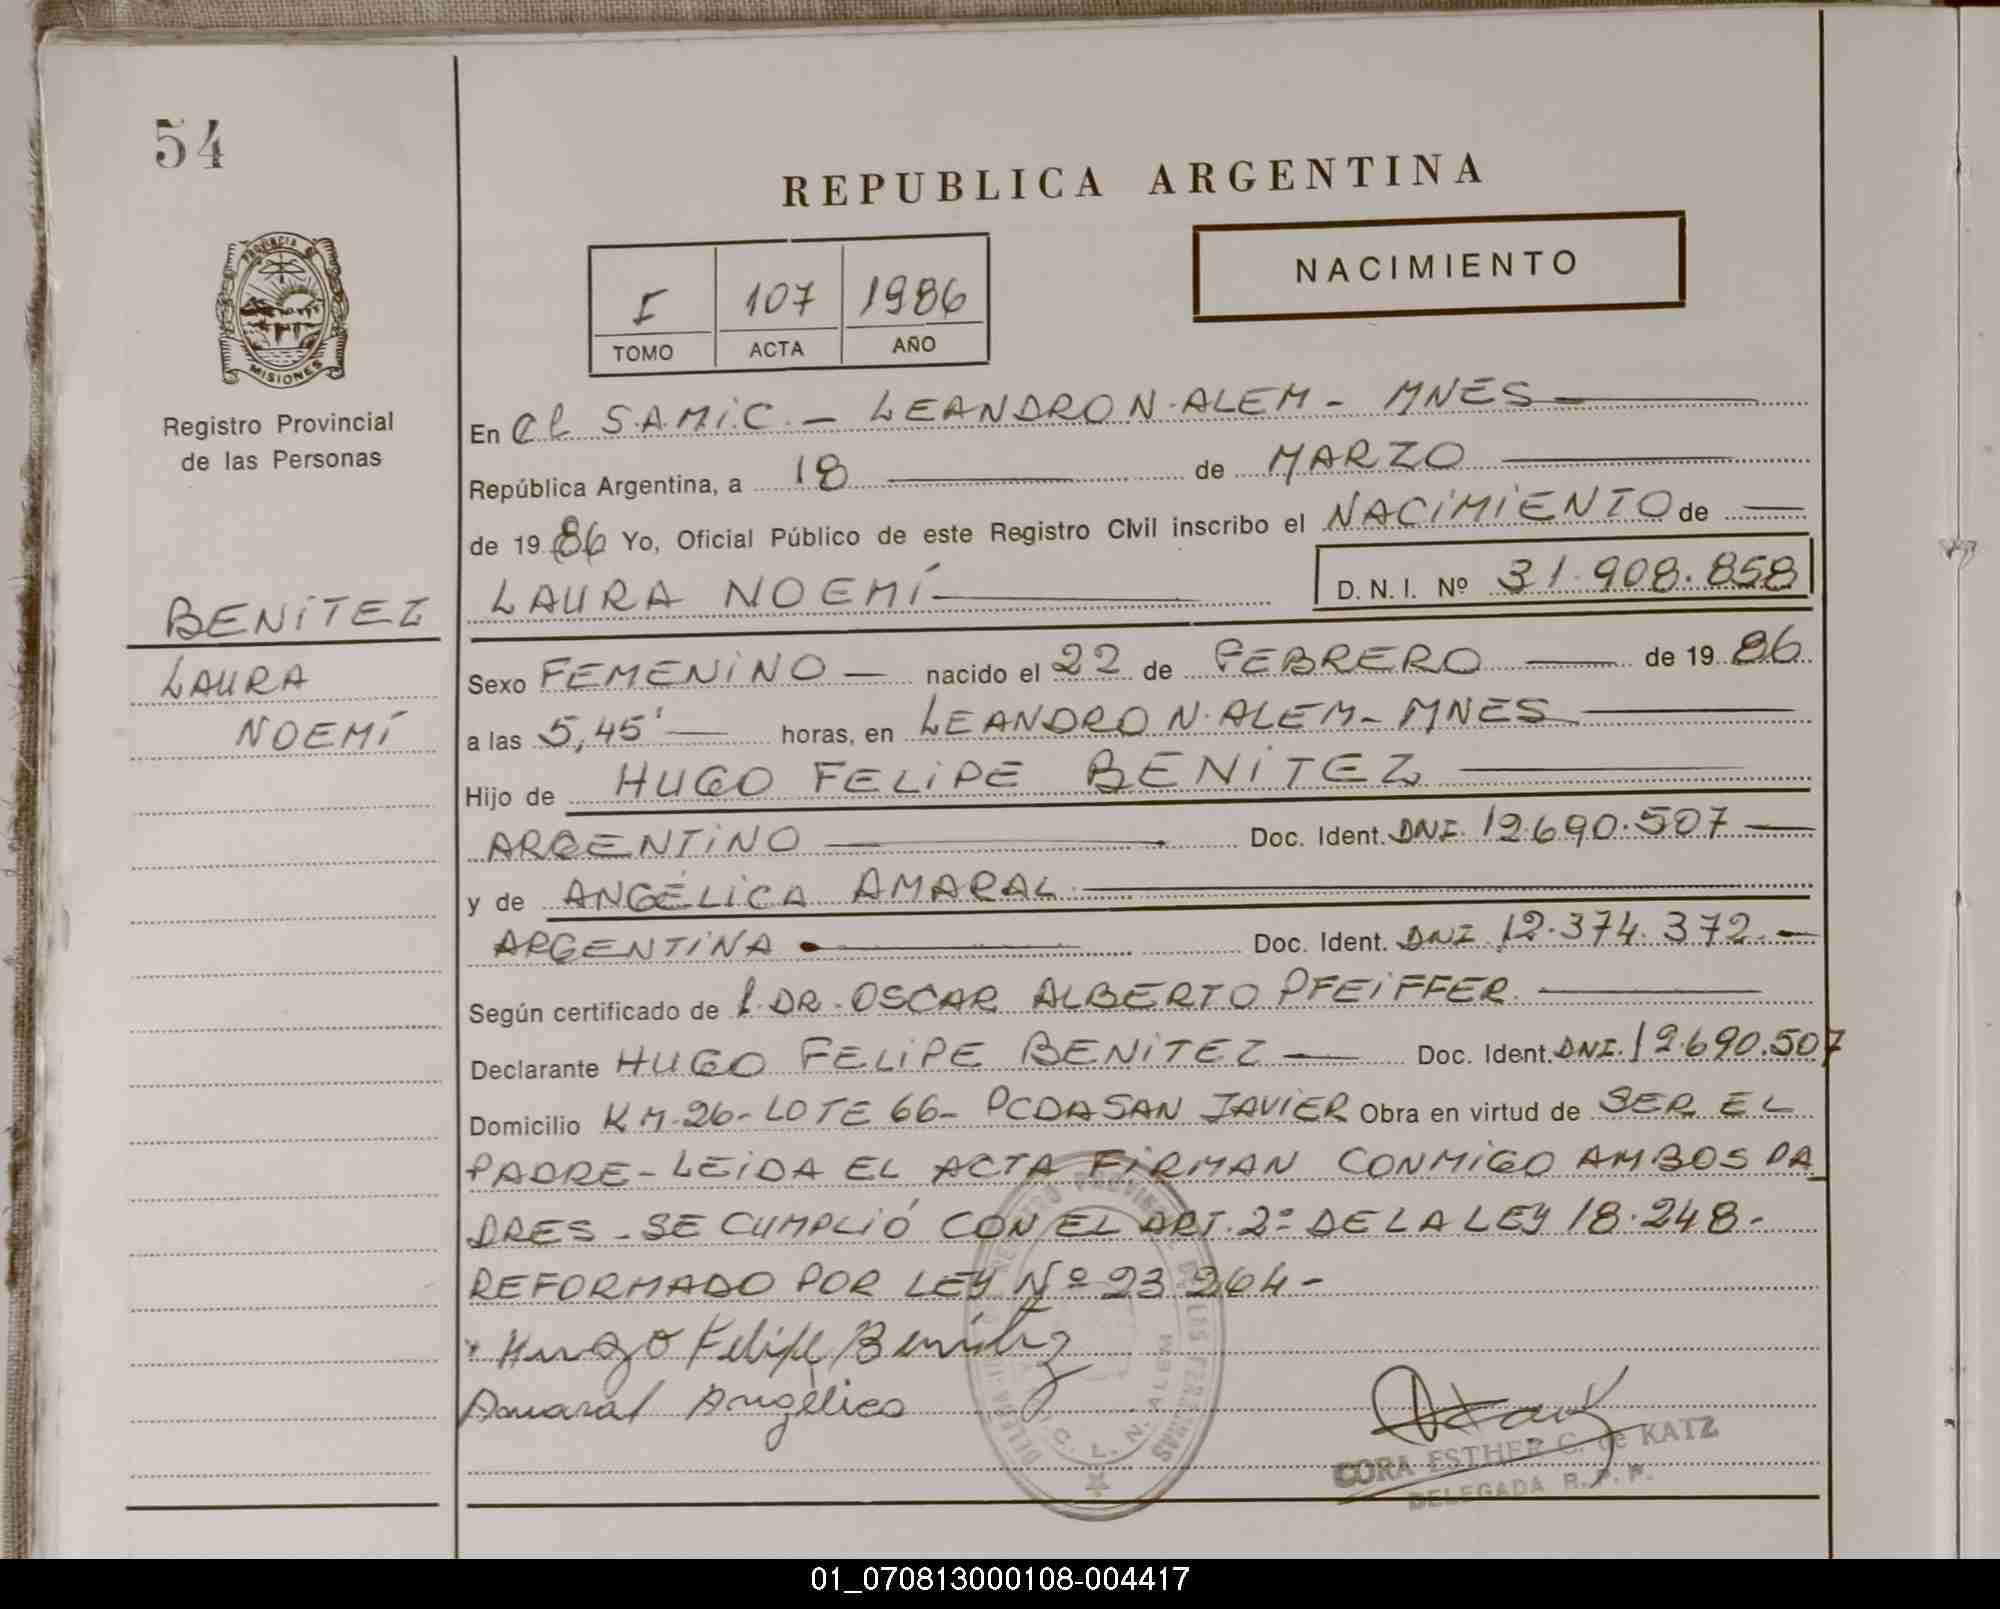 54
REPUBLICA ARGENTINA
NACIMIENTO
I 107 1986
TOMO ACTA AÑO
PROVINCIA DE
MISIONES
Registro Provincial
de las Personas
BENiTEZ
LAURA
NOEMÍ
En el S.A.M.i.C. - LEANDRO N. ALEM - MNES
República Argentina, a 18 de MARZO
de 1986 Yo, Oficial Público de este Registro Civil inscribo el NACiMiENTO de
LAURA NOEMÍ D. N. I. Nº 31.908.858
Sexo FEMENiNO nacido el 22 de FEBRERO de 1986
a las 5,45' horas, en LEANDRO N. ALEM - MNES
Hijo de HUGO FELiPE BENiTEZ
ARGENTiNO Doc. Ident. DNI. 12.690.507
y de ANGÉLiCA AMARAL
ARGENTiNA Doc. Ident. DNI 12.374.372
Según certificado de l. DR. OSCAR ALBERTO PFEiFFER
Declarante HUGO FELiPE BENiTEZ Doc. Ident. DNI. 12.690.507
Domicilio KM.26 - LOTE 66 - PCDA SAN JAViER Obra en virtud de SER EL
PADRE - LEiDA EL ACTA FiRMAN CONMiGO AMBOS PA
DRES - SE CUMPLiÓ CON EL ART. 2º DE LA LEY 18.248 -
REFORMADO POR LEY Nº 23.264 -
Hugo Felipe Benitez
Amaral Angélica
L. N. ALEM
CORA ESTHER C. de KATZ
DELEGADA R. P. P.
01_070813000108-004417